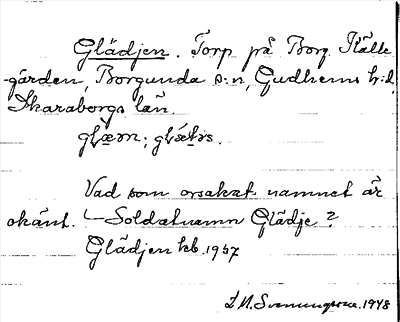 Glädjen. Torp på Borg. Källe
gården, Borgunda s:n, Gudhems h:d.
Skaraborgs län.
glæm; glæ̀tɩs.
Vad som orsakat namnet är
okänt. – Soldatnamn Glädje?
Glädjen kb. 1937
L.N. 1948